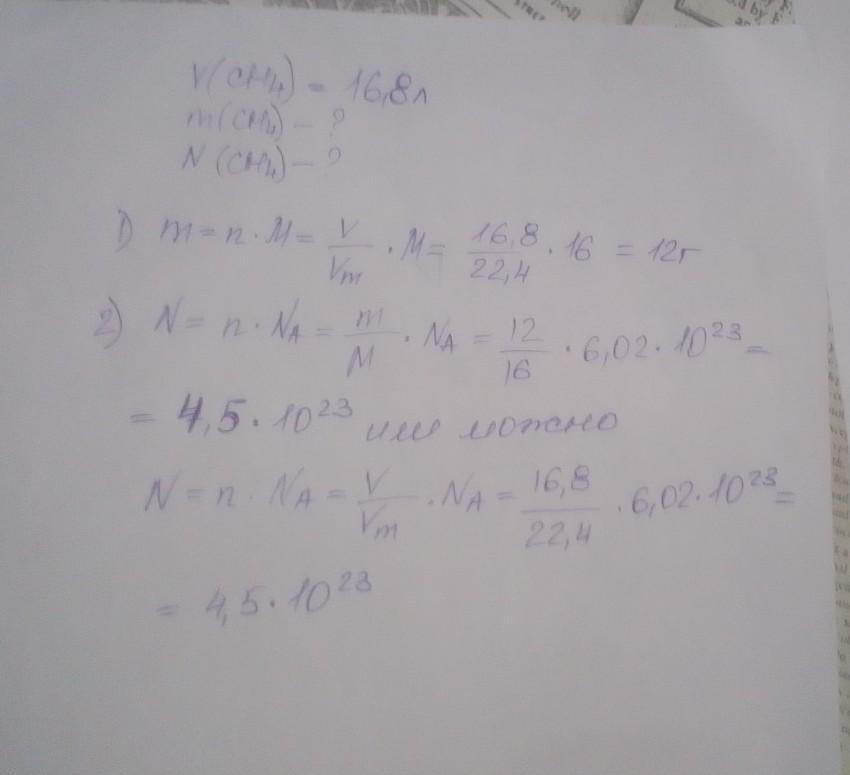 V(CH4) = 16,8л
m(CH4) – ?
N(CH4) – ?
1) m = n · M = V/Vm · M = 16,8/22,4 · 16 = 12г
2) N = n · NA = m/M · NA = 12/16 · 6,02 · 10^23 =
= 4,5 · 10^23 или можно
N = n · NA = V/Vm · NA = 16,8/22,4 · 6,02 · 10^23 =
= 4,5 · 10^23